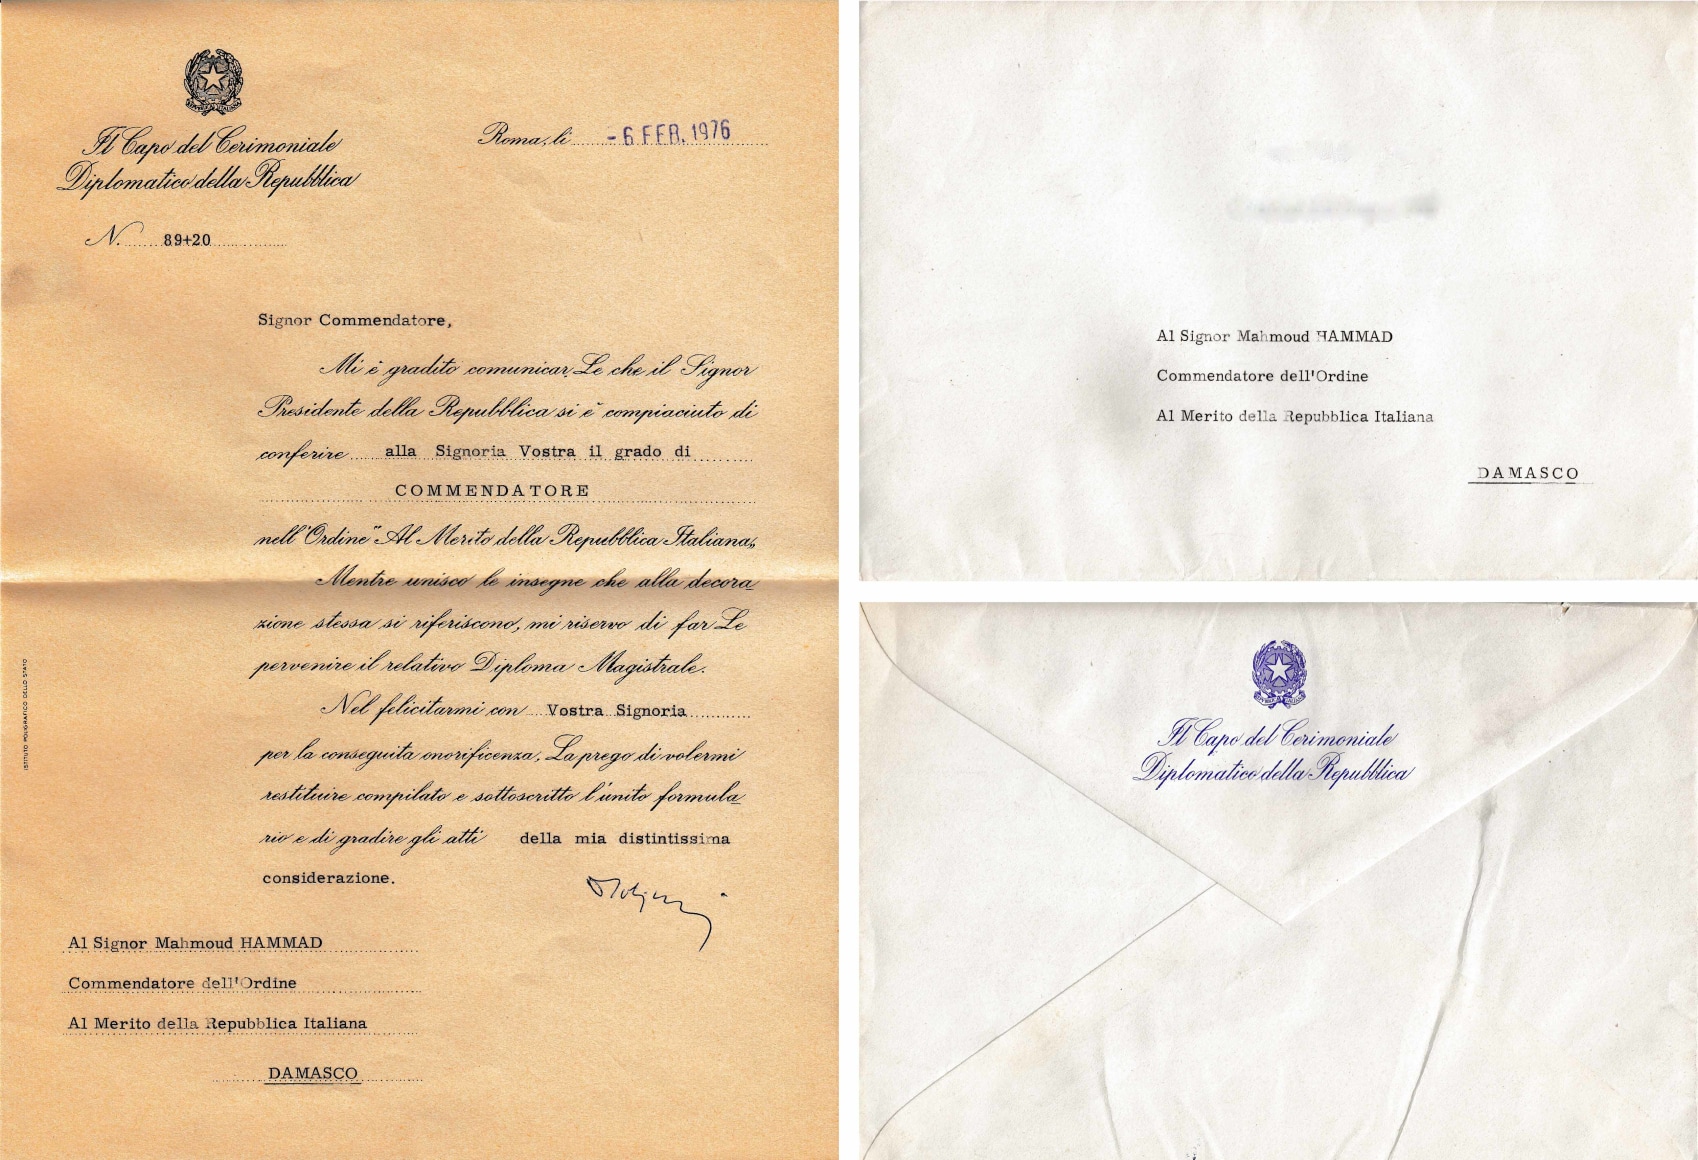 Il Capo del Cerimoniale
Diplomatico della Repubblica
Roma, li - 6 FEB. 1976
N. 89+20
Signor Commendatore,
Mi è gradito comunicarLe che il Signor
Presidente della Repubblica si è compiaciuto di
conferire alla Signoria Vostra il grado di
COMMENDATORE
nell'Ordine "Al Merito della Repubblica Italiana„
Mentre unisco le insegne che alla decora
zione stessa si riferiscono, mi riservo di farLe
pervenire il relativo Diploma Magistrale.
Nel felicitarmi con Vostra Signoria
per la conseguita onorificenza, La prego di volermi
restituire compilato e sottoscritto l'unito formula
rio e di gradire gli atti della mia distintissima
considerazione.
Al Signor Mahmoud HAMMAD
Commendatore dell'Ordine
Al Merito della Repubblica Italiana
DAMASCO
ISTITUTO POLIGRAFICO DELLO STATO
Al Signor Mahmoud HAMMAD
Commendatore dell'Ordine
Al Merito della Repubblica Italiana
DAMASCO
Il Capo del Cerimoniale
Diplomatico della Repubblica